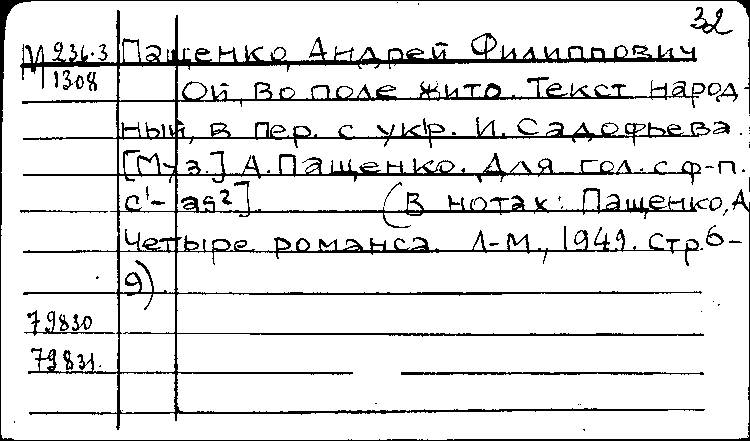 32
М 236.3 Пащенко, Андрей Филиппович
1308
Ой, во поле жито. Текст народ-
ный, в пер. с укр. И. Садофьева.
[Муз.] А. Пащенко. Для гол. с ф-п.
c¹- as²]. (В нотах: Пащенко, А
Четыре романса. Л-М., 1949. Стр 6-
9)
79830
79831.